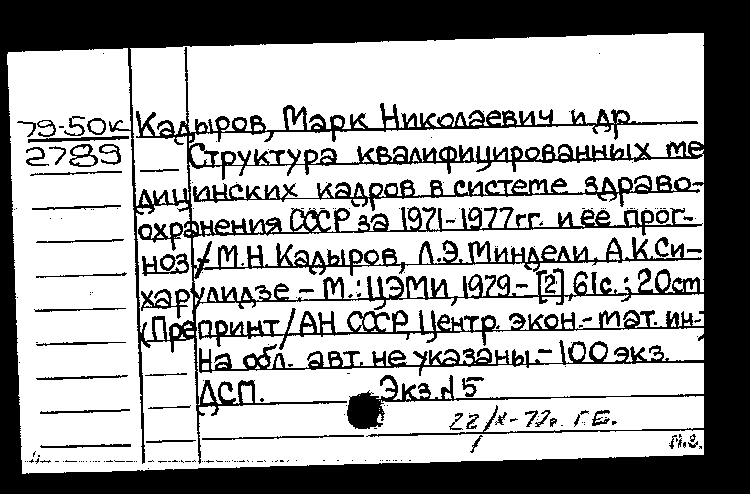 79-50к Кадыров, Марк Николаевич и др.
2789 Структура квалифицированных ме
дицинских кадров в системе здраво-
охранения СССР за 1971-1977гг. и ее прог-
ноз / М.Н. Кадыров, Л.Э. Миндели, А.К. Си-
харулидзе. - М.: ЦЭМИ, 1979. - [2], 61с.; 20cm
(Препринт / АН СССР, Центр. экон.-мат. ин-т
На обл. авт. не указаны. - 100 экз.
ДСП. Экз. №5
22/X- Г.Б.